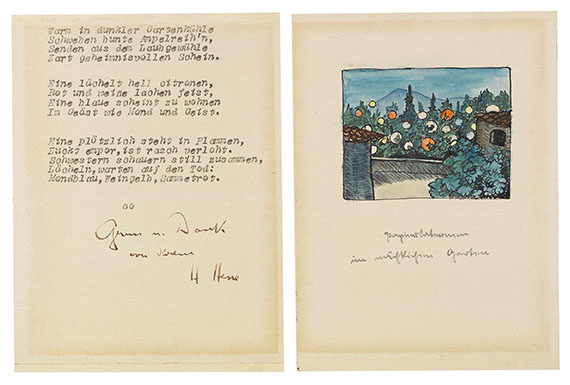 Warm in dunkler Gartenkühle
Schweben bunte Ampelreih'n,
Senden aus dem Laubgewühle
Zart geheimnisvollen Schein.
Eine lächelt hell zitronen,
Rot und weiße lachen feist,
Eine blaue scheint zu wohnen
Im Geäst wie Mond und Geist.
Eine plötzlich steht in Flammen,
Zuckt empor, ist rasch verloht.
Schwestern schauern still zusammen,
Lächeln, warten auf den Tod:
Mondblau, Weingelb, Sammetrot.
oo
Gruss u. Dank
von Ihrem
H Hesse
Papierlaternen
im nächtlichen Garten